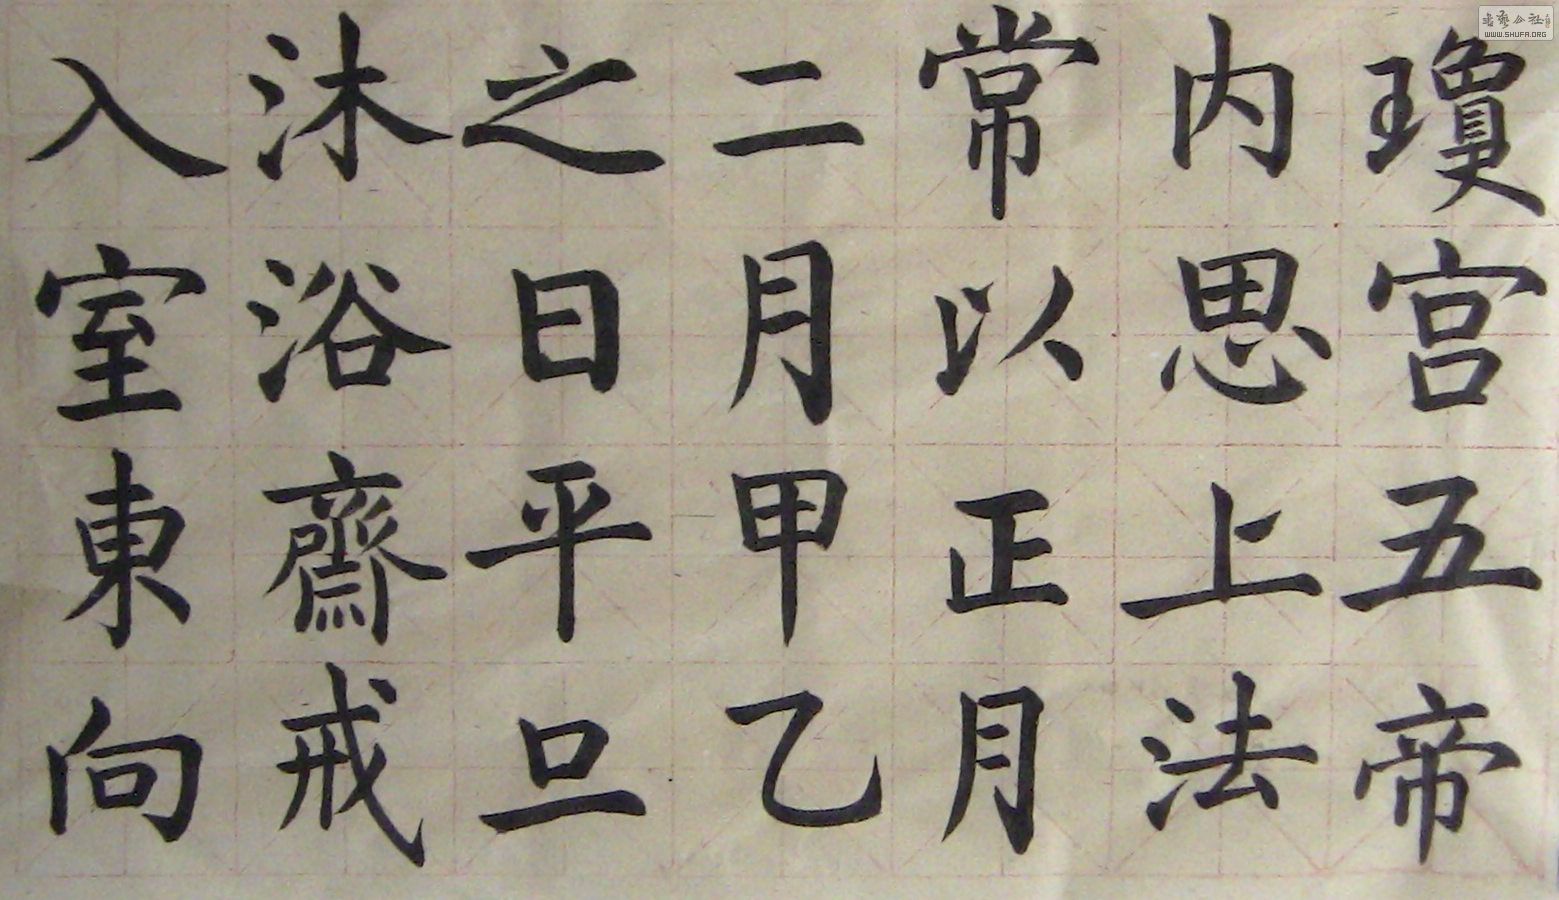 瓊宮五帝
内思上法
常以正月
二月甲乙
之日平旦
沐浴齋戒
入室東向
書藝公社
WWW.SHUFA.ORG